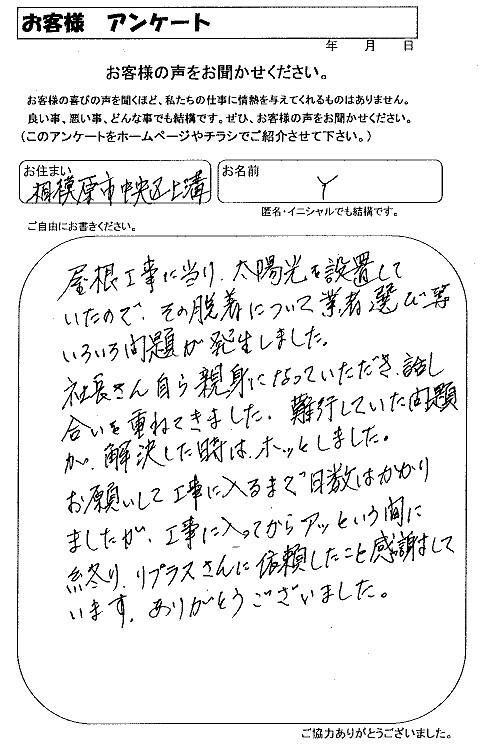 お客様 アンケート
年 月 日
お客様の声をお聞かせください。
お客様の喜びの声を聞くほど、私たちの仕事に情熱を与えてくれるものはありません。
良い事、悪い事、どんな事でも結構です。ぜひ、お客様の声をお聞かせください。
(このアンケートをホームページやチラシでご紹介させて下さい。)
お住まい
相模原市中央区上溝
お名前
Y
匿名・イニシャルでも結構です。
ご自由にお書きください。
屋根工事に当り、太陽光を設置して
いたので、その脱着について業者選び等
いろいろ問題が発生しました。
社長さん自ら親身になっていただき、話し
合いを重ねてきました。難行していた問題
が、解決した時は、ホッとしました。
お願いして工事に入るまで日数はかかり
ましたが、工事に入ってからアッという間に
終り、リプラスさんに依頼したこと感謝して
います。ありがとうございました。
ご協力ありがとうございました。